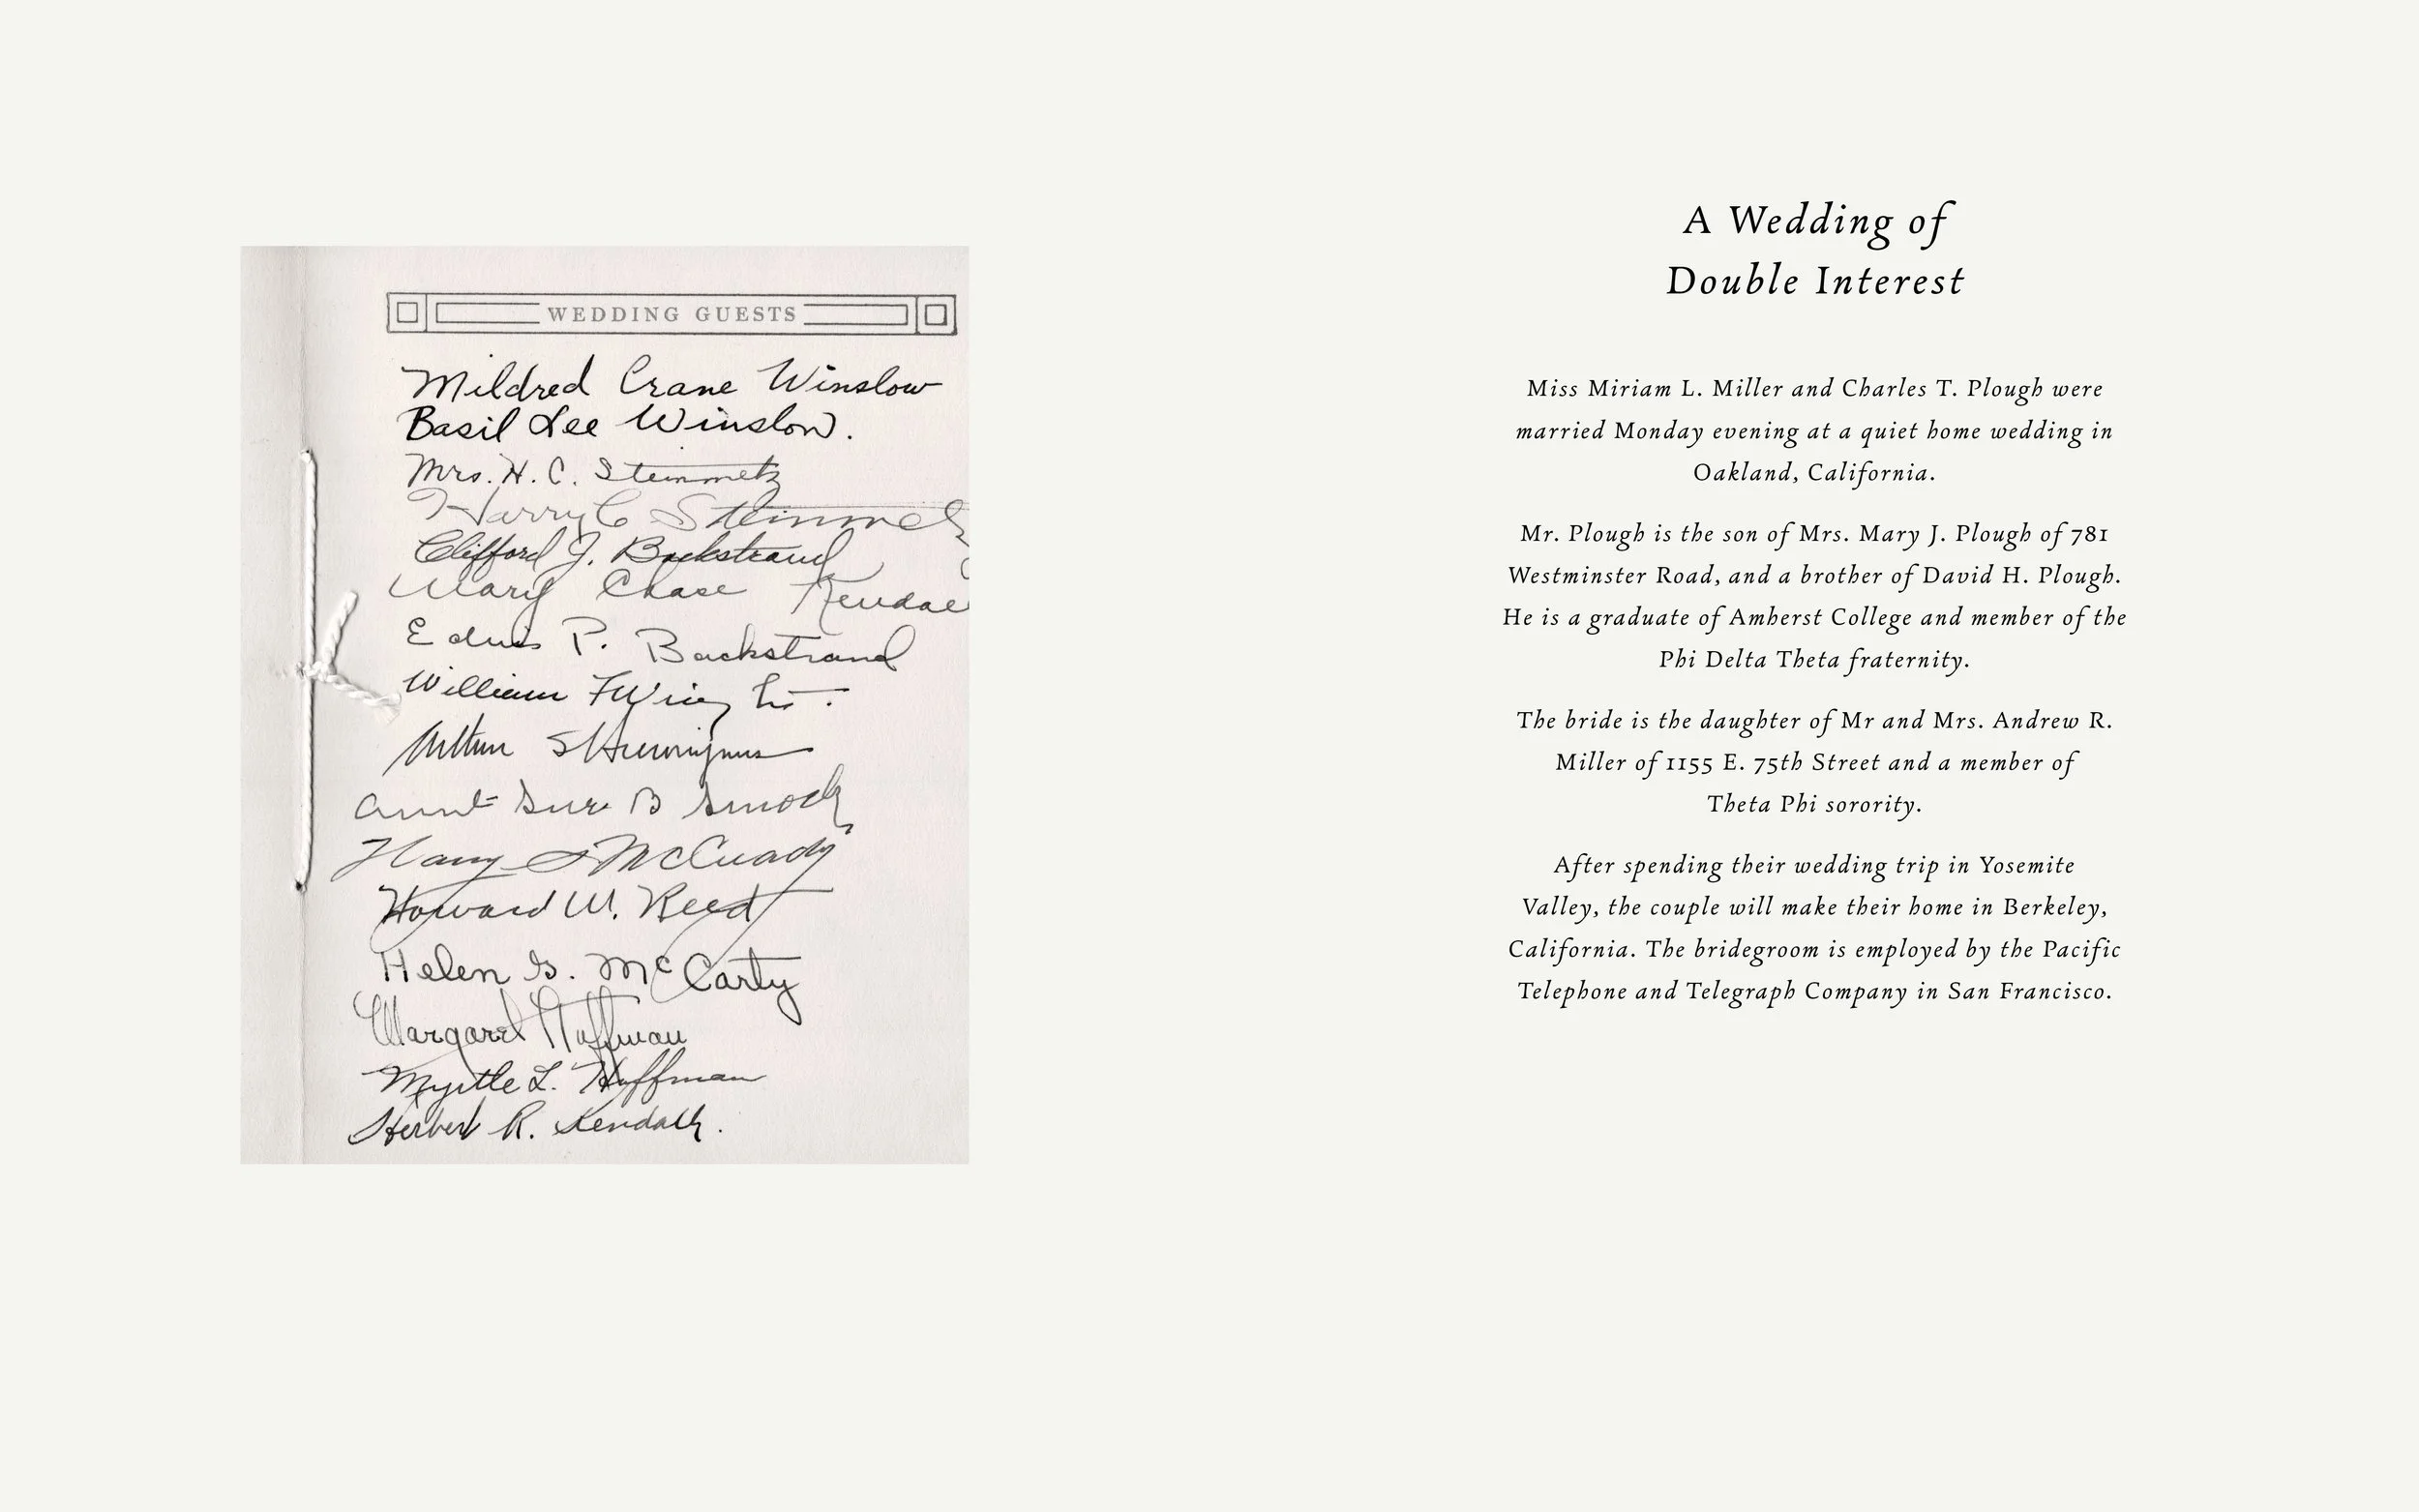 WEDDING GUESTS
Mildred Crane Winslow
Basil Lee Winslow.
Mrs. H. C. Steinmetz
Harry C Steinmetz
Clifford J. Backstrand
Mary Chase Kendall
Edna P. Backstrand
William
Arthur S Hieronymus
Aunt Sue B Smock
Harry McCready
Howard W. Reed
Helen G. McCarty
Margaret Huffman
Myrtle L. Huffman
Herbert R. Kendall.
A Wedding of
Double Interest
Miss Miriam L. Miller and Charles T. Plough were
married Monday evening at a quiet home wedding in
Oakland, California.
Mr. Plough is the son of Mrs. Mary J. Plough of 781
Westminster Road, and a brother of David H. Plough.
He is a graduate of Amherst College and member of the
Phi Delta Theta fraternity.
The bride is the daughter of Mr and Mrs. Andrew R.
Miller of 1155 E. 75th Street and a member of
Theta Phi sorority.
After spending their wedding trip in Yosemite
Valley, the couple will make their home in Berkeley,
California. The bridegroom is employed by the Pacific
Telephone and Telegraph Company in San Francisco.